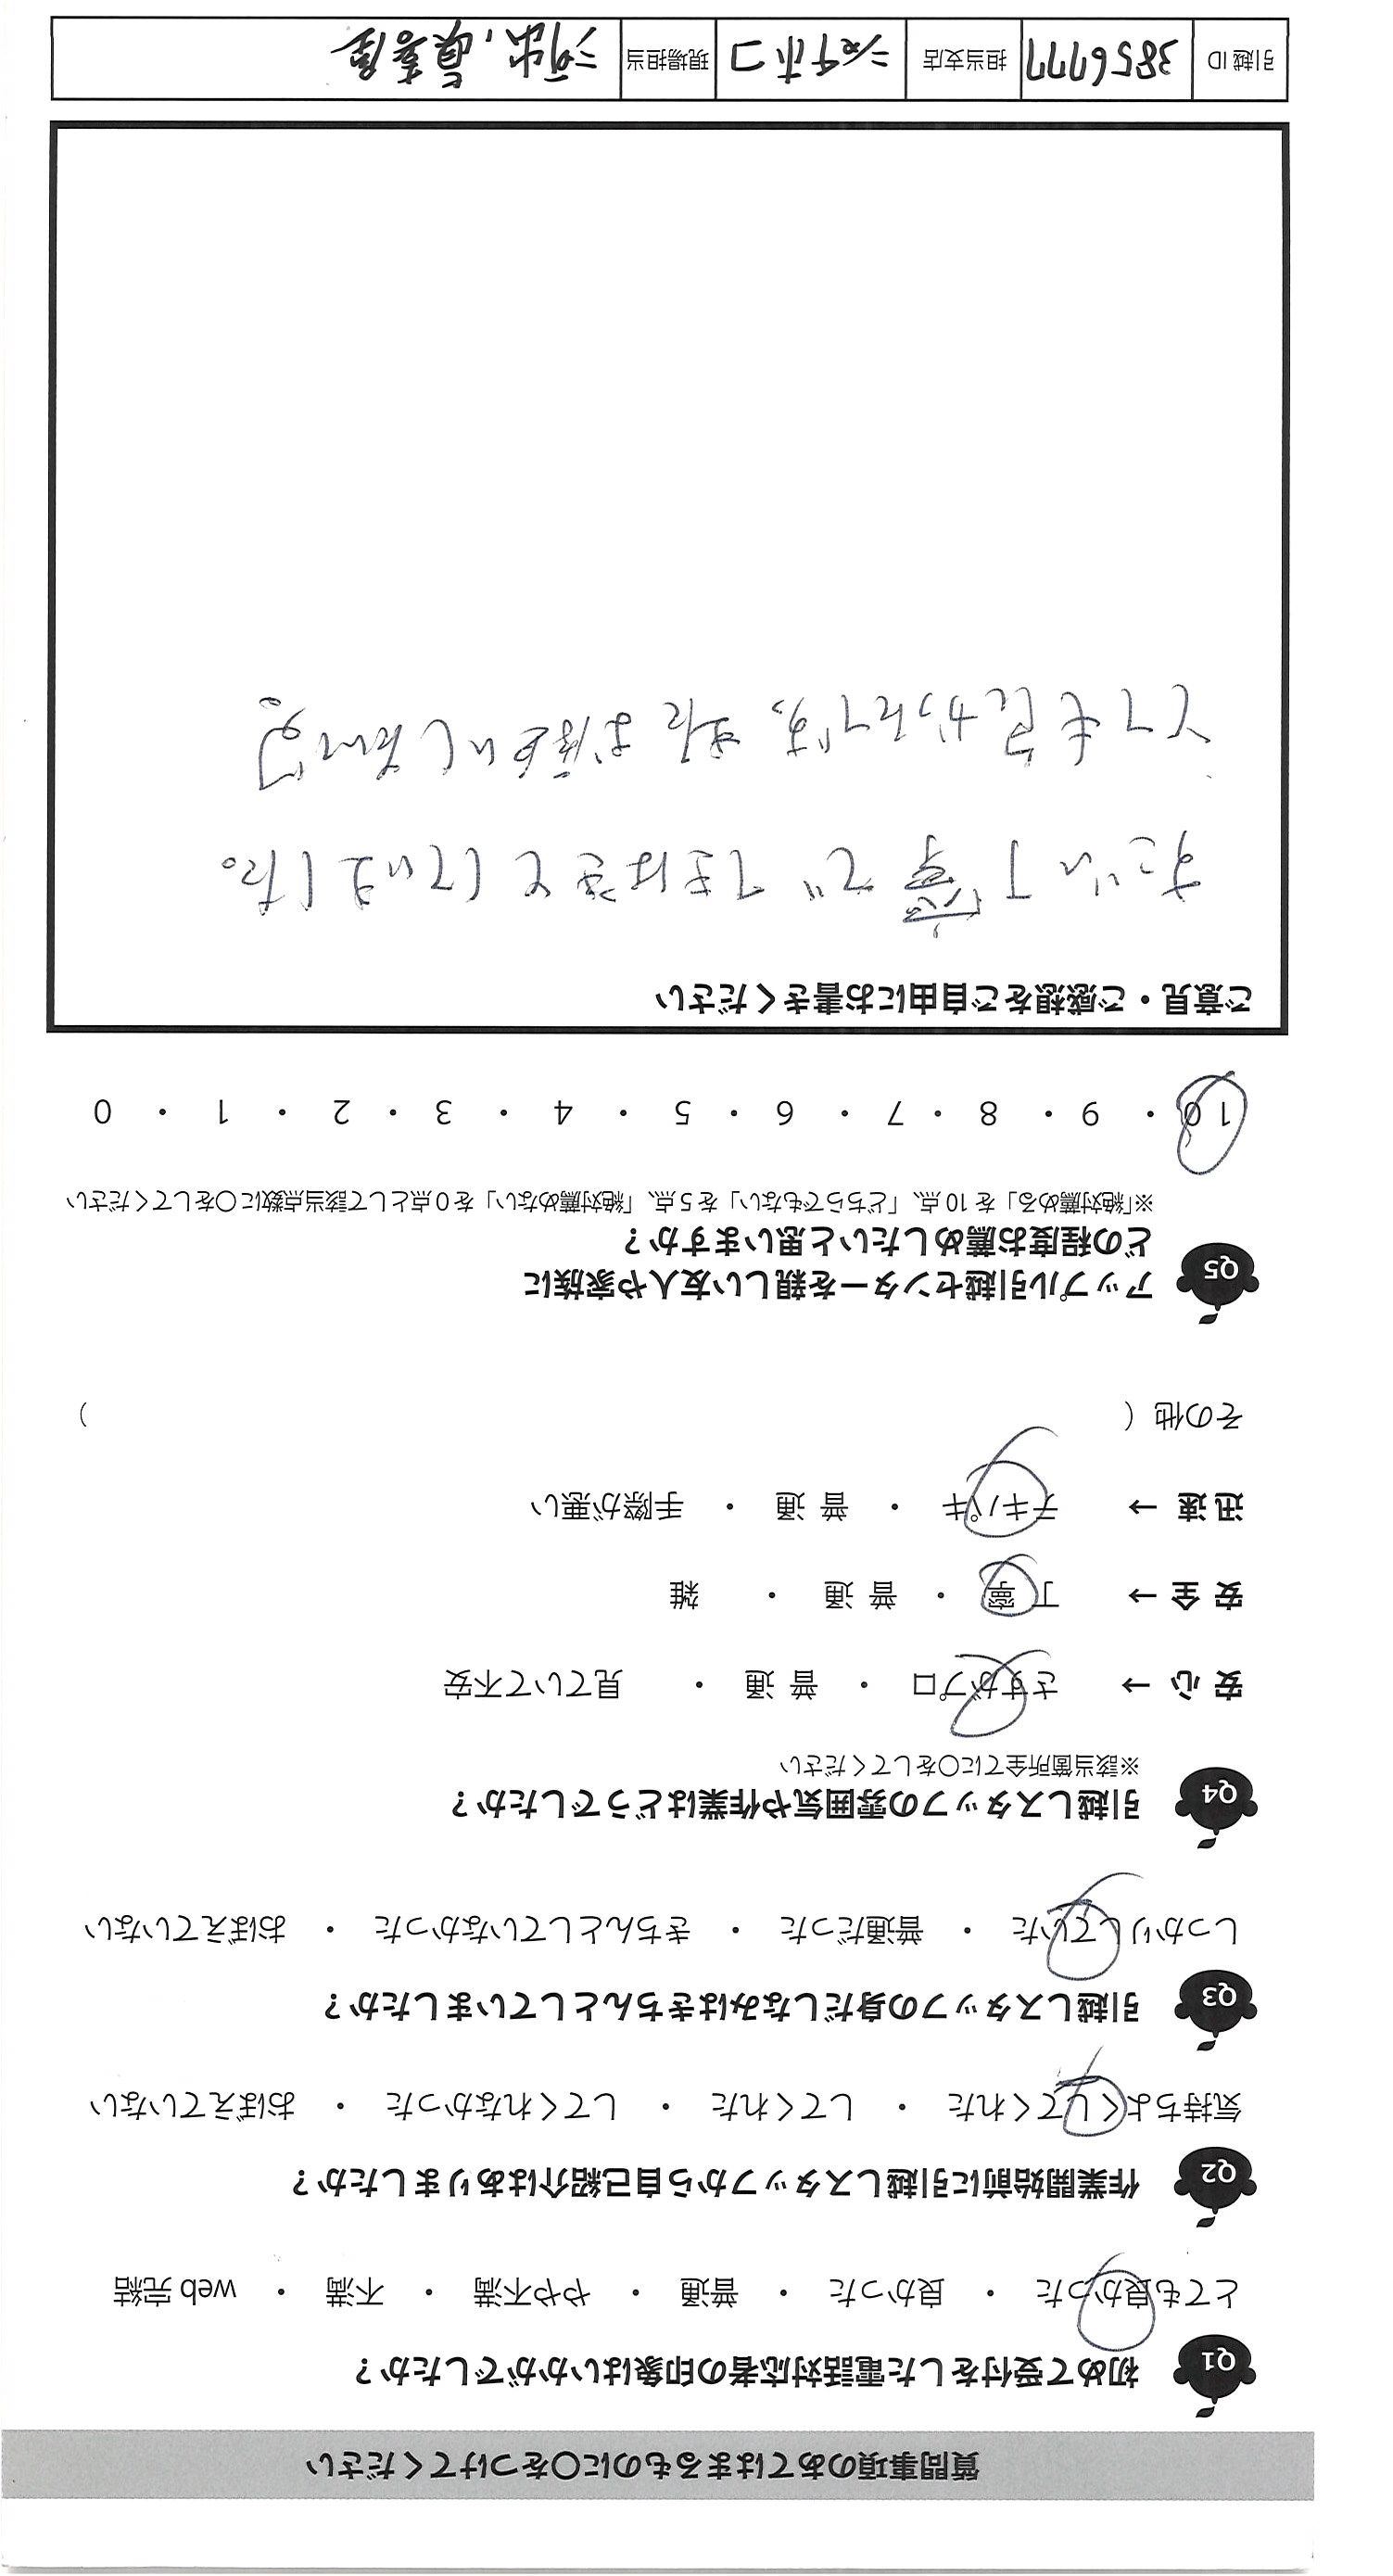 質問事項のあてはまるものに〇をつけてください
Q1 初めて受付をした電話対応者の印象はいかがでしたか？
とても良かった ・ 良かった ・ 普通 ・ やや不満 ・ 不満 ・ web 完結
Q2 作業開始前に引越しスタッフから自己紹介はありましたか？
気持ちよくしてくれた ・ してくれた ・ してくれなかった ・ おぼえていない
Q3 引越しスタッフの身だしなみはきちんとしていましたか？
しっかりしていた ・ 普通だった ・ きちんとしていなかった ・ おぼえていない
Q4 引越しスタッフの雰囲気や作業はどうでしたか？
※該当箇所全てに〇をしてください
安 心 → さすがプロ ・ 普 通 ・ 見ていて不安
安 全 → 丁 寧 ・ 普 通 ・ 雑
迅 速 → テキパキ ・ 普 通 ・ 手際が悪い
その他（ ）
Q5 アップル引越センターを親しい友人や家族に
どの程度お薦めしたいと思いますか？
※「絶対薦める」を 10 点、「どちらでもない」を 5 点、「絶対薦めない」を 0 点として該当点数に〇をしてください
10 ・ 9 ・ 8 ・ 7 ・ 6 ・ 5 ・ 4 ・ 3 ・ 2 ・ 1 ・ 0
ご意見・ご感想をご自由にお書きください
丁寧で てきぱきとしていました。
とても良かったです。またお願いしたいです
引越 ID 3856777 担当支店 シャチホコ 現場担当 河出,